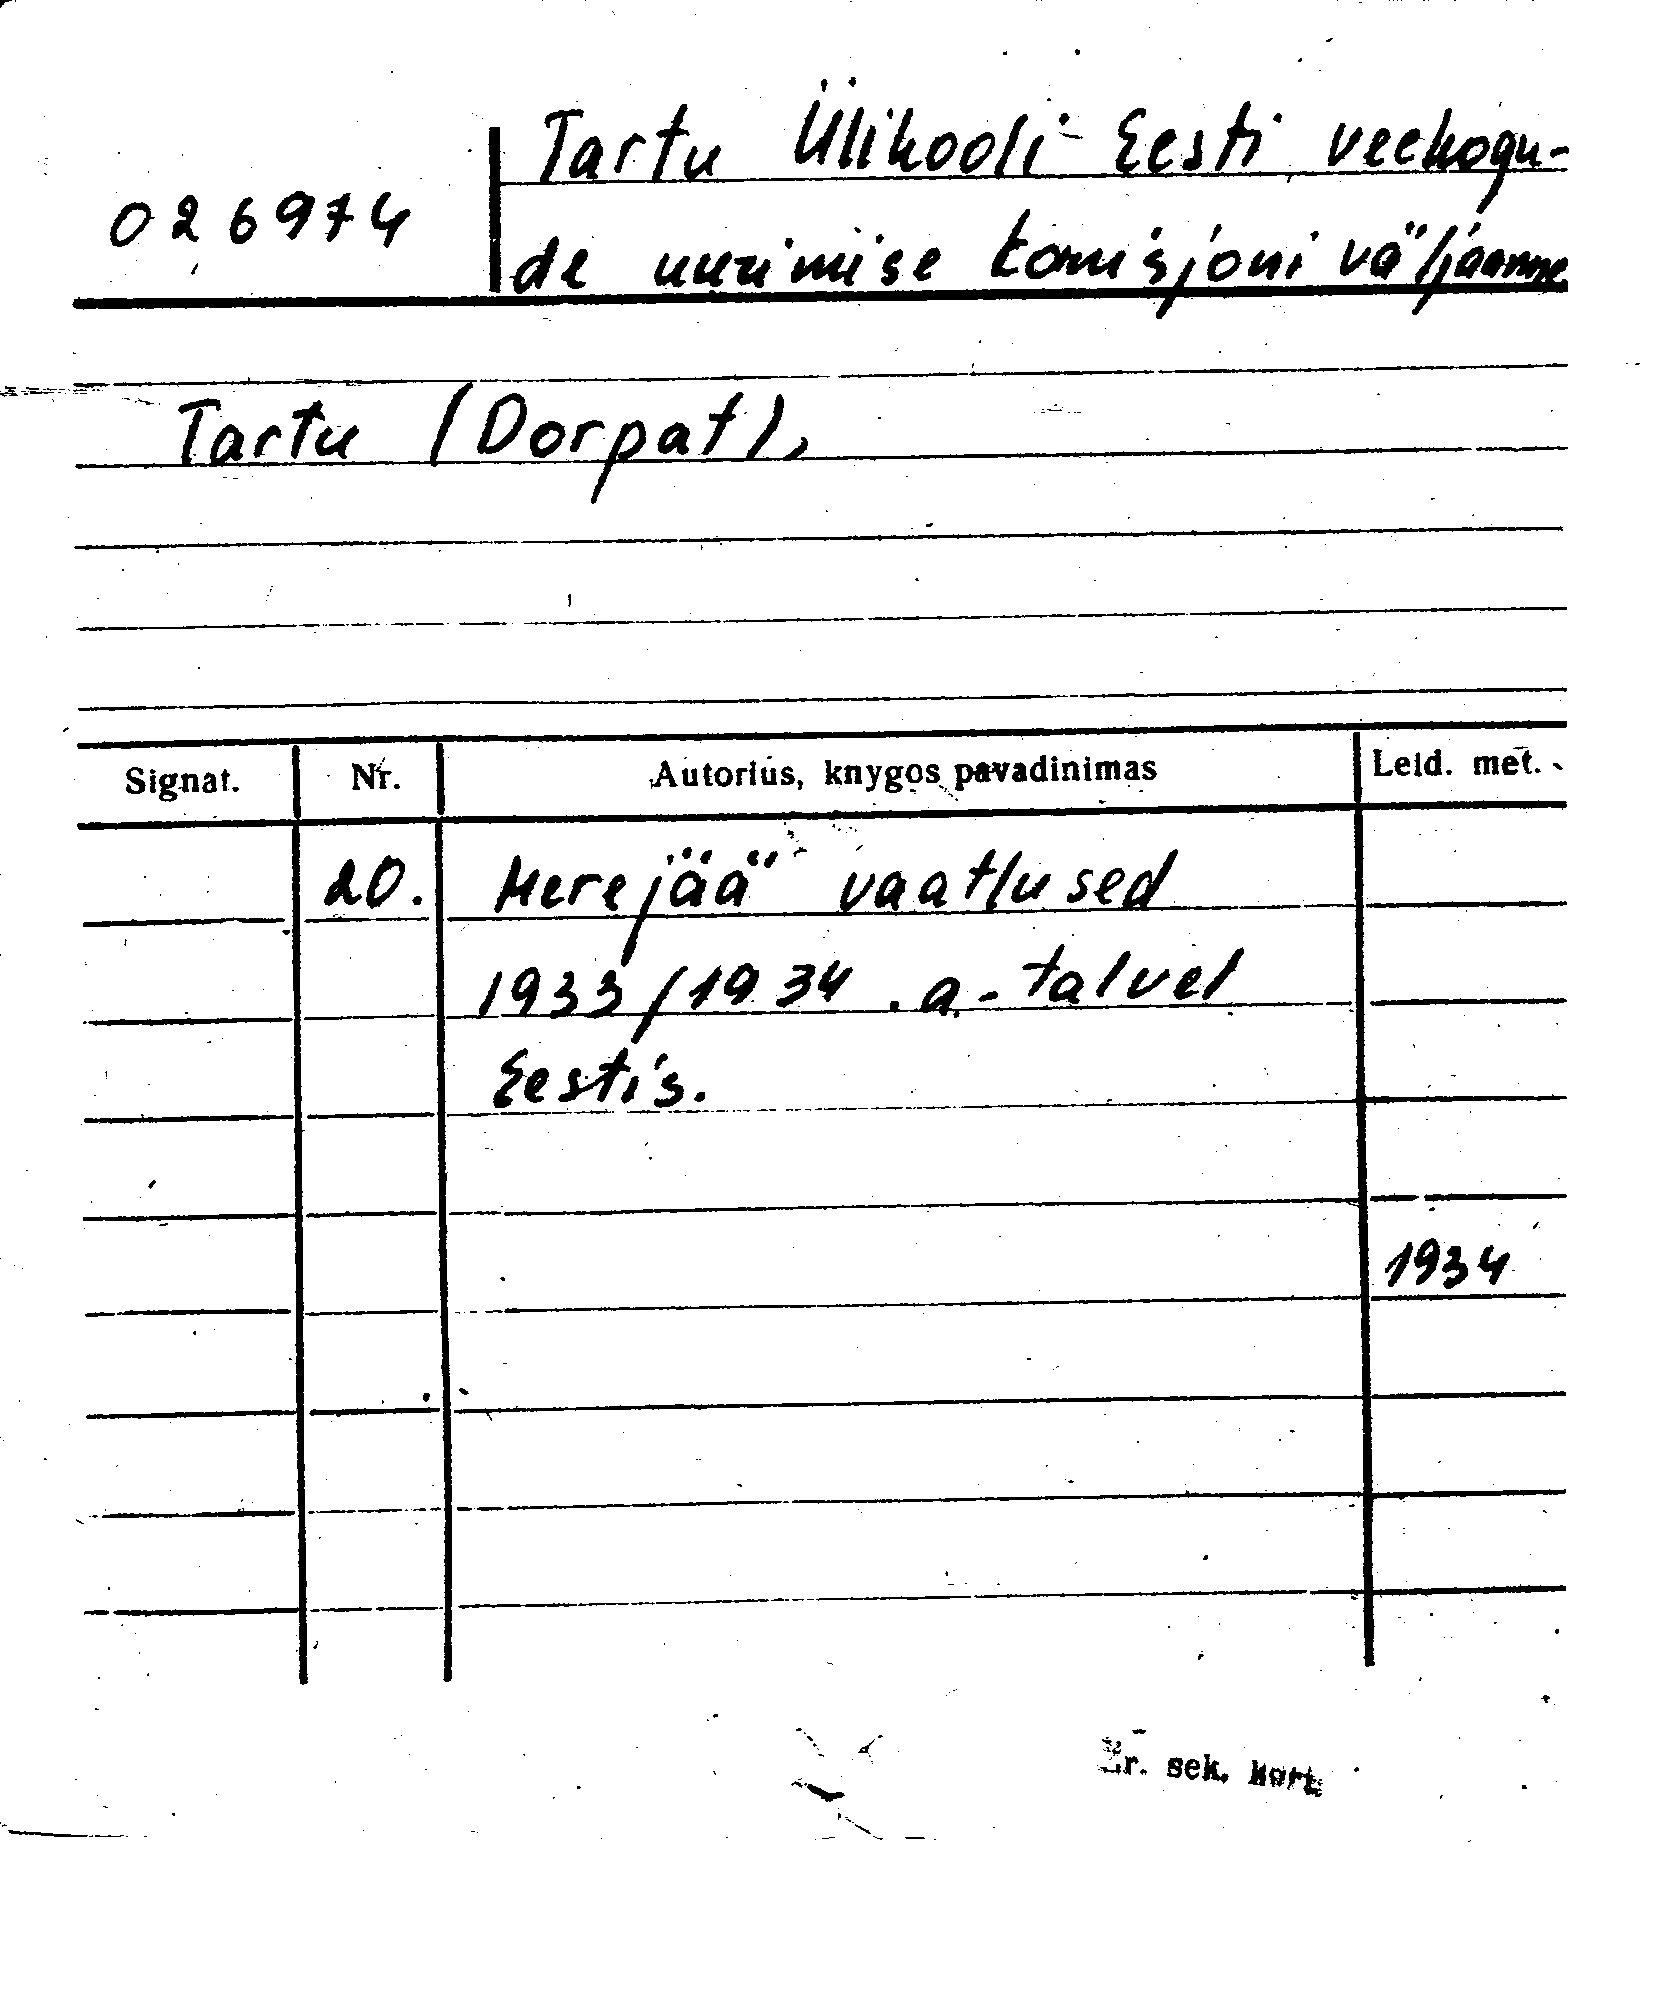 Tartu Ülikooli Eesti veekogu-
026974
de uurimise komisjoni väljaanne
Tartu (Dorpat),
Signat. Nr. Autorius, knygos pavadinimas Leid. met.
20. Merejää vaatlused
1933/1934 . a. talvel
Eestis.
1934
Žr. sek. kort.